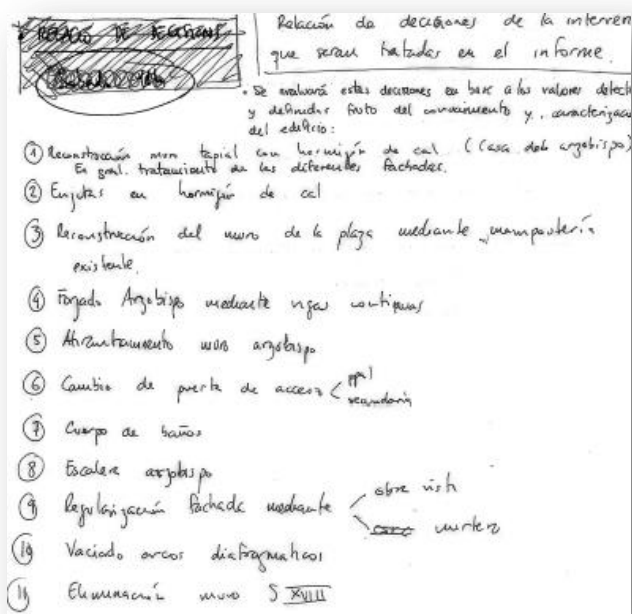 RELACIÓ DE DECISIONS
Relación de decisiones de la interven
que seran tratadas en el informe.
• Se evaluará estas decisiones en base a los valores detect
y definidos fruto del conocimiento y caracterizac
del edificio:
① Reconstrucción muro tapial con hormigón de cal. (Casa del arzobispo)
En gral. tratamiento de las diferentes fachadas.
② Enjutas en hormigón de cal
③ Reconstrucción del muro de la plaza mediante mampostería
existente.
④ Forjado Arzobispo mediante vigas continuas
⑤ Atirantamiento muro arzobispo
⑥ Cambio de puerta de acceso < ppal
secundaria
⑦ Cuerpo de baños
⑧ Escalera arzobispo
⑨ Regularización fachada mediante obra vista
mortero
⑩ Vaciado arcos diafragmaticos
⑪ Eliminación muro S XVIII